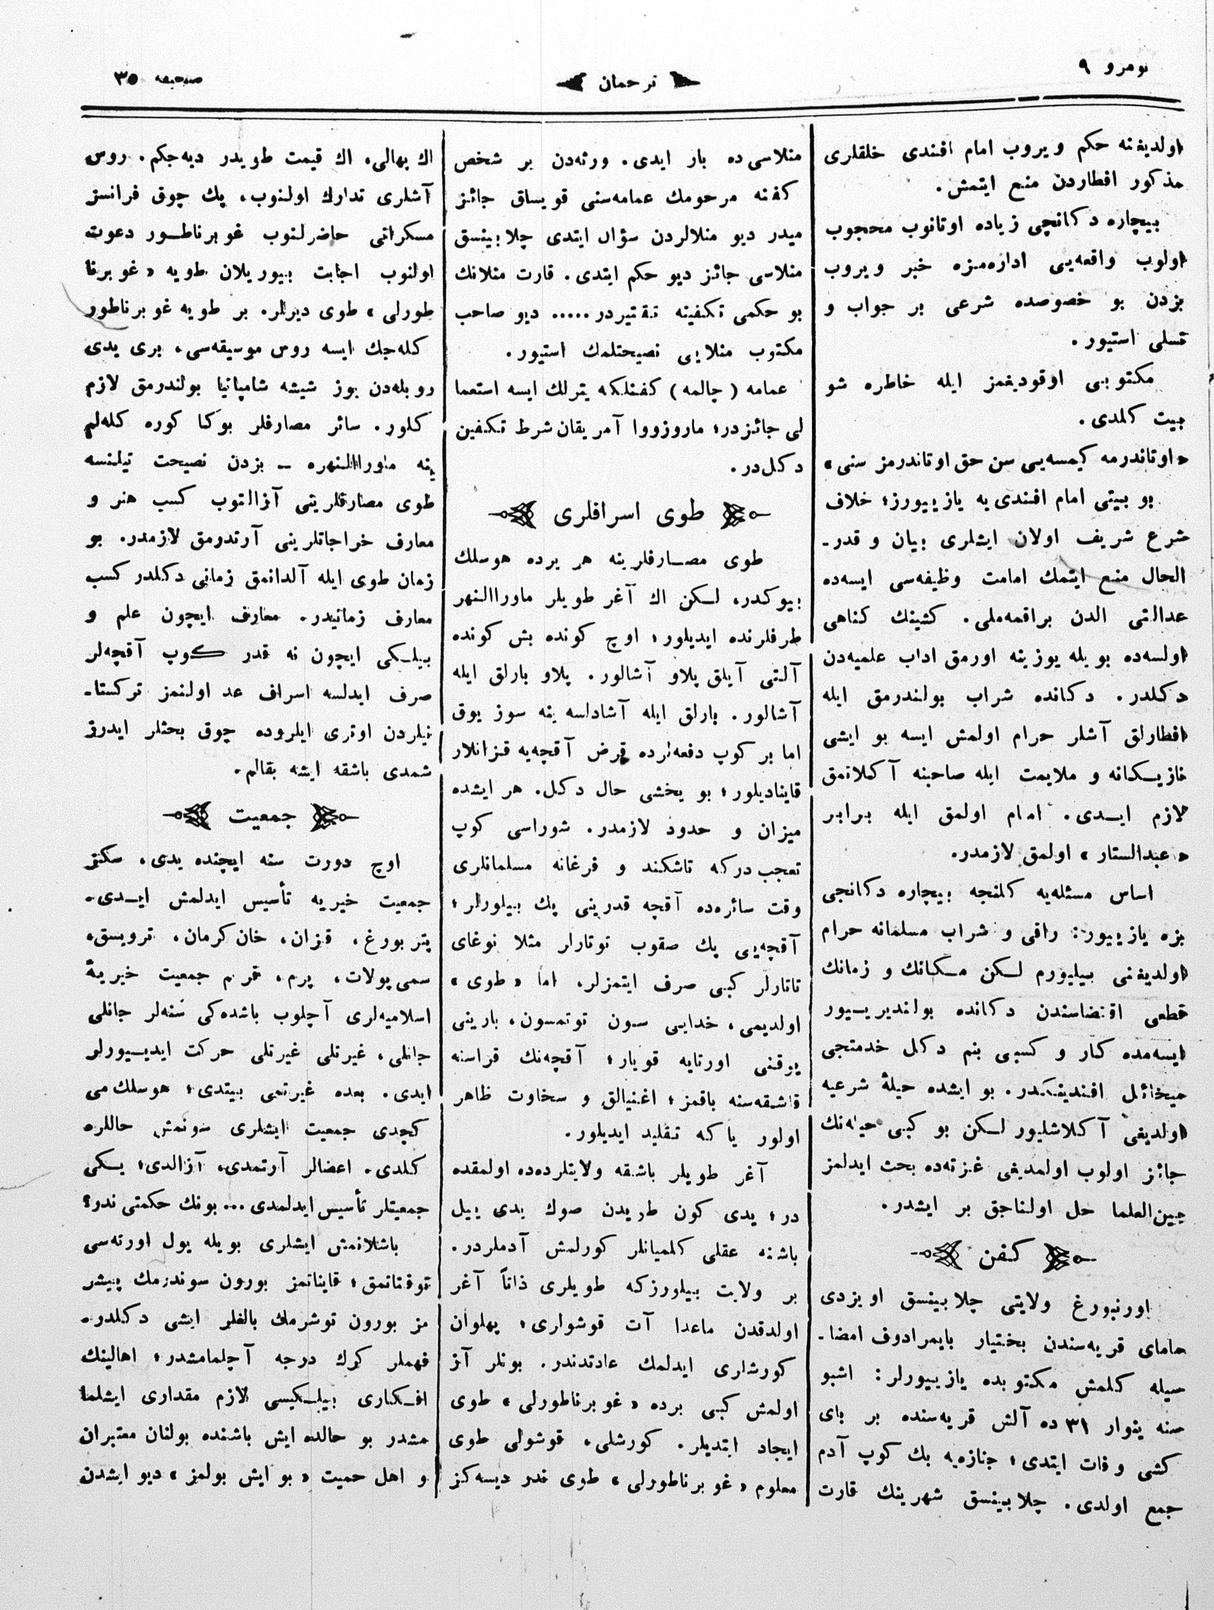 نومرو ٩
ترجمان
صحيفه ٣٥
اولديغنه حكم ويروب امام افندى خلقلرى
مذكور افطاردن منع ايتمش.
بيچاره دكانچى زياده اوتانوب محجوب
اولوب واقعه‌يى اداره‌مزه خبر ويروب
بزدن بو خصوصده شرعى بر جواب و
تسلى استيور.
مكتوبى اوقوديغمز ايله خاطره شو
بيت كلدى.
«اوتاندرمه كيمسه‌يى سن حق اوتاندرمز سنى»
بو بيتى امام افندى يه يازييورز؛ خلاف
شرع شريف اولان ايشلرى بيان و قدر-
الحال منع ايتمك امامت وظيفه‌سى ايسه‌ده
عدالتى الدن براقمه‌ملى. كشينك كناهى
اولسه‌ده بويله يوزينه اورمق اداب علميه‌دن
دكلدر. دكانده شراب بولندرمق ايله
افطارلق آشلر حرام اولمش ايسه بو ايشى
نازيكانه و ملايمت ايله صاحبنه آكلاتمق
لازم ايدى. امام اولمق ايله برابر
«عبدالستار» اولمق لازمدر.
اساس مسئله‌يه كلنجه بيچاره دكانجى
بزه يازييور: راقى و شراب مسلمانه حرام
اولديغنى بيليورم لكن مكانك و زمانك
قطعى اقتضاسندن دكانده بولنديرييور
ايسه‌مده كار و كسبى بنم دكل خدمتجى
ميخائل افندينكدر. بو ايشده حيلۀ شرعيه
اولديغى آكلاشليور لكن بو كبى حيله‌نك
جائز اولوب اولمديغى غزته‌ده بحث ايدلمز
بين‌العلما حل اولناجق بر ايشدر.
كفن
اورنبورغ ولايتى چلابينسق اويزدى
ماماى قريه‌سندن بختيار بايمرادوف امضا-
سيله كلمش مكتوبده يازييورلر: اشبو
سنه ينوار ٣١ ده آلش قريه‌سنده بر باى
كشى وفات ايتدى؛ جنازه‌يه بك كوپ آدم
جمع اولدى. چلابينسق شهرينك قارت
منلاسى‌ده بار ايدى. ورثه‌دن بر شخص
كفنه مرحومك عمامه‌سنى قويساق جائز
ميدر ديو منلالردن سؤال ايتدى چلابينسق
منلاسى جائز ديو حكم ايتدى. قارت منلانك
بو حكمى تكفينه تقتيردر..... ديو صاحب
مكتوب منلايى نصيحتلمك استيور.
عمامه (چالمه) كفنلكه يترلك ايسه استعما
لى جائزدر؛ ماروزووا آمريقان شرط تكفين
دكل‌در.
طوى اسرافلرى
طوى مصارفلرينه هر يرده هوسلك
بيوكدر، لكن اك آغر طويلر ماوراالنهر
طرفلرنده ايديلور؛ اوچ كونده بش كونده
آلتى آيلق پلاو آشالور. پلاو بارلق ايله
آشالور. بارلق ايله آشادلسه ينه سوز يوق
اما بر كوپ دفعه‌لرده قرض آقچه‌يه قزانلار
قايناديلور؛ بو يخشى حال دكل. هر ايشده
ميزان و حدود لازمدر. شوراسى كوپ
تعجب‌دركه تاشكند و فرغانه مسلمانلرى
وقت سائره‌ده آقچه قدرينى پك بيلورلر؛
آقچه‌يى پك صقوب توتارلر مثلا نوغاى
تاتارلر كبى صرف ايتمزلر. اما «طوى»
اولديمى، خدايى سون توتمسون، بارينى
يوقنى اورتايه قويار؛ آقچه‌نك قراسنه
قاشقه‌سنه باقمز؛ اغنيالق و سخاوت ظاهر
اولور ياكه تقليد ايديلور.
آغر طويلر باشقه ولايتلرده‌ده اولمقده
در؛ يدى كون طويدن صوك يدى ييل
باشنه عقلى كلميانلر كورلمش آدملردر.
بر ولايت بيلورزكه طويلرى ذاتاً آغر
اولدقدن ماعدا آت قوشوارى؛ پهلوان
كورشلرى ايدلمك عادتدندر. بونلر آز
اولمش كبى برده «غوبرناطورلى» طوى
ايجاد ايتديلر. كورشلى، قوشولى طوى
معلوم «غوبرناطورلى» طوى ندر ديسه‌كز
اك بهالى، اك قيمت طويدر ديه‌جكم. روس
آشلرى تدارك اولنوب، پك چوق فرانسز
مسكراتى حاضرلنوب غوبرناطور دعوت
اولنوب اجابت بيوريلان طويه «غوبرنا
طورلى» طوى ديرلر. بر طويه غوبرناطور
كله‌جك ايسه روس موسيقه‌سى، برى يدى
روبله‌دن يوز شيشه شامپانيا بولندرمق لازم
كلور. سائر مصارفلر بوكا كوره كله‌لم
ينه ماوراالنهره - بزدن نصيحت تيلنسه
طوى مصارفلرينى آزالتوب كسب هنر و
معارف خراجاتلرينى آرتدرمق لازمدر. بو
زمان طوى ايله آلدانمق زمانى دكلدر كسب
معارف زمانيدر. معارف ايچون علم و
بيلكى ايچون نه قدر كوپ آقچه‌لر
صرف ايدلسه اسراف عد اولنمز تركستا-
نيلردن اوترى ايلروده چوق بحثلر ايدرز
شمدى باشقه ايشه بقالم.
جمعيت
اوچ دورت سنه ايچنده يدى، سكز
جمعيت خيريه تأسيس ايدلمش ايدى.
پتربورغ، قزان، خان‌كرمان، ترويسق،
سمى‌پولات، پرم، قرم جمعيت خيريۀ
اسلاميه‌لرى آچلوب باشده‌كى سنه‌لر جانلى
جانلى، غيرتلى غيرتلى حركت ايدييورلر
ايدى. بعده غيرتمى بيتدى؛ هوسلك‌مى
كچدى جمعيت ايشلرى سونمش حاللره
كلدى. اعضالر آرتمدى، آزالدى؛ يكى
جمعيتلر تأسيس ايدلمدى... بونك حكمتى ندر؟
باشلانمش ايشلرى بويله يول اورته‌سى
توقتاتمق؛ قايناتمز بورون سوندرمك پيشر
مز بورون توشرمك بالغلر ايشى دكلدر.
فهملر كرك درجه آچلمامشدر؛ اهالينك
افكارى بيلكيسى لازم مقدارى ايشلما
مشدر بو حالده ايش باشنده بولنان معتبران
و اهل حميت «بو ايش بولمز» ديو ايشدن